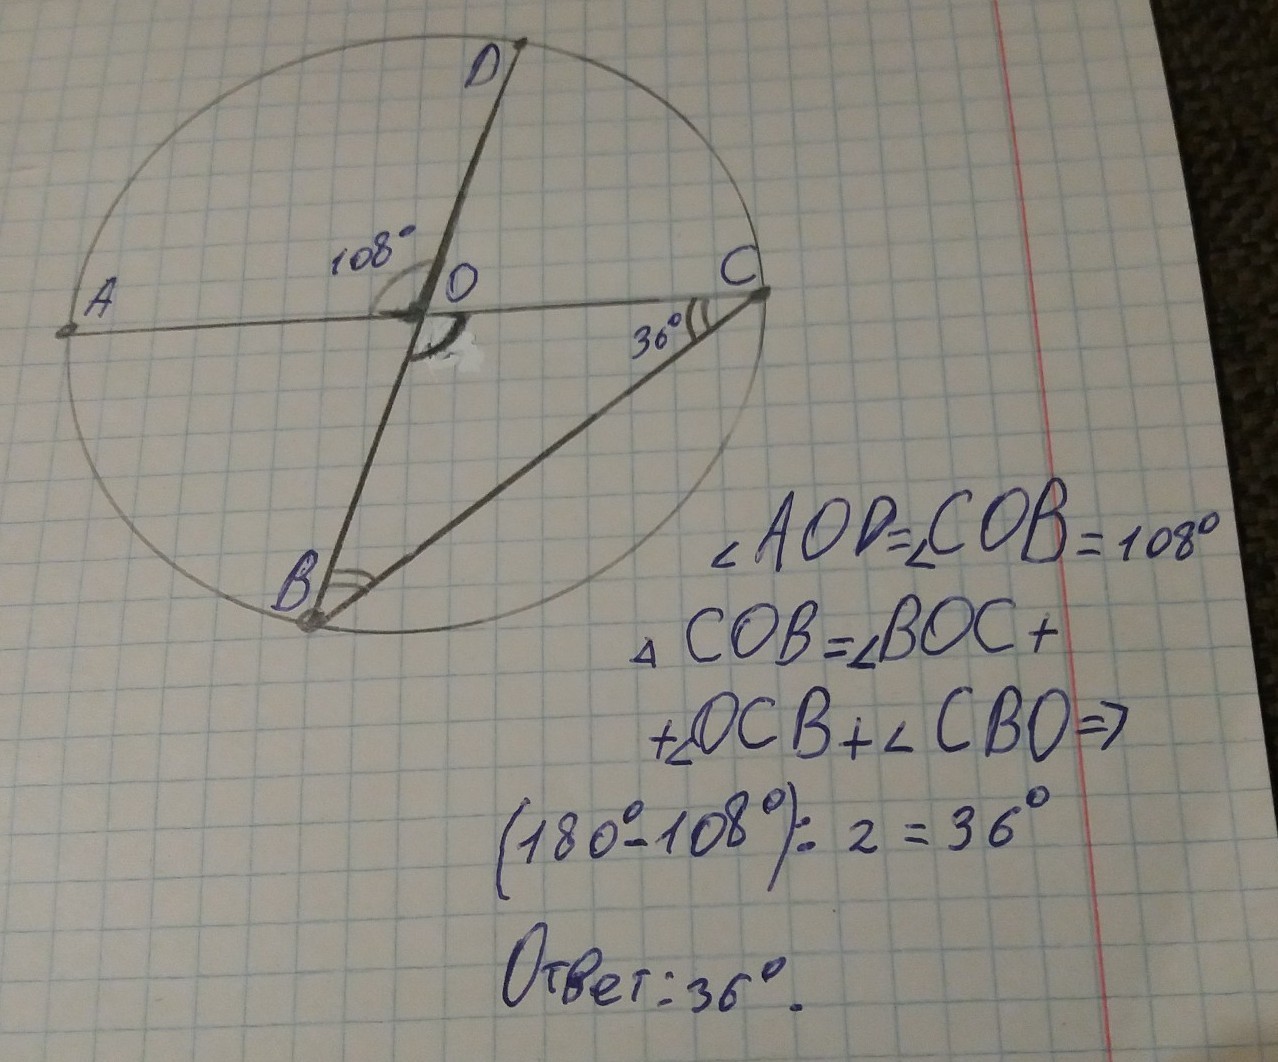 D
108°
A
O
C
36°
B
∠AOD=∠COB=108°
△ COB=∠BOC+
+∠OCB+∠ CBO=>
(180°-108°): 2 = 36°
Ответ: 36°.